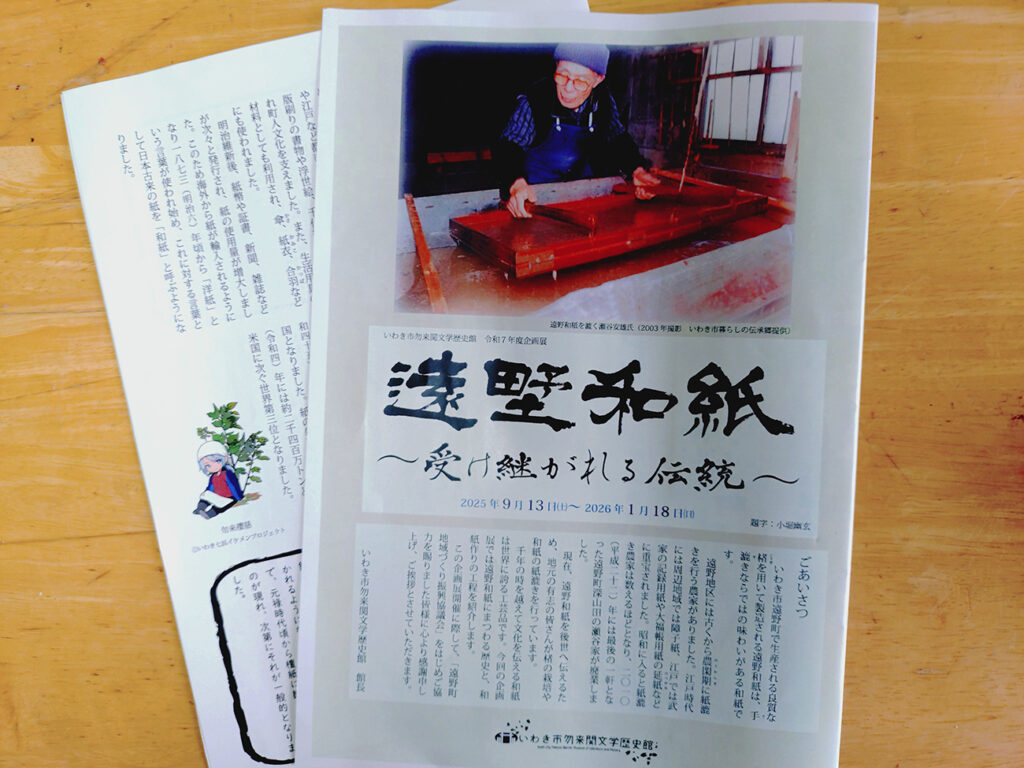 遠野和紙を漉く瀬谷安雄氏(2003年撮影 いわき市暮らしの伝承郷提供)
いわき市勿来関文学歴史館 令和7年度企画展
遠野和紙
~受け継がれる伝統~
2025年9月13日(土)~2026年1月18日(日)
題字:小堀幽玄
ごあいさつ
いわき市遠野町で生産される良質な
楮を用いて製造される遠野和紙は、手
漉きならではの味わいがある和紙で
す。
遠野地区には古くから農閑期に紙漉
きを行う農家がありました。江戸時代
には周辺地域では障子紙、江戸では武
家の記録用紙や大福帳用紙の延紙など
に重宝されました。昭和に入ると紙漉
き農家は数えるほどとなり、二〇一〇
(平成二十二)年には最後の一軒とな
った遠野町深山田の瀬谷家が廃業しま
した。
現在、遠野和紙を後世へ伝えるた
め、地元の有志の皆さんが楮の栽培や
和紙の紙漉きを行っています。
千年の時を越えて文化を伝える和紙
は世界に誇る工芸品です。今回の企画
展では遠野和紙にまつわる歴史と、和
紙作りの工程を紹介します。
この企画展開催に際して、「遠野町
地域づくり振興協議会」をはじめご協
力を賜りました皆様に心より感謝申し
上げ、ご挨拶とさせていただきます。
いわき市勿来関文学歴史館 館長
いわき市勿来関文学歴史館
や江戸など
版刷りの書物や浮世絵、
れ町人文化を支えました。また、生活用
材料としても利用され、傘、紙衣、合羽など
にも使われました。
明治維新後、紙幣や証書、新聞、雑誌など
が次々と発行され、紙の使用量が増大しまし
た。このため海外から紙が輸入されるように
なり一八七三(明治六)年頃から「洋紙」と
いう言葉が使われ始め、これに対する言葉と
して日本古来の紙を「和紙」と呼ぶようにな
りました。
和四十
国となりました。紙の
(令和四)年には約二千四百万トンと
米国に次ぐ世界第三位となりました。
勿来櫻慈
©いわき七浜イケメンプロジェクト
かれるように
て、元禄時代頃から楮紙に
のが現れ、次第にそれが一般的となりま
した。